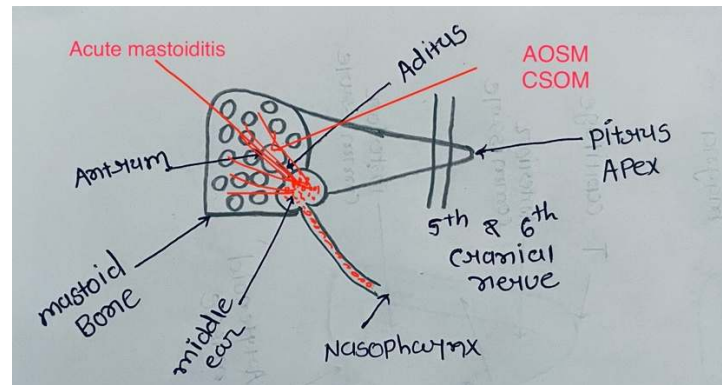 Acute mastoiditis
Aditus
AOSM
CSOM
Antrum
Pitrus
Apex
5th & 6th
Cranial
nerve
mastoid
Bone
middle
ear
Nasopharynx